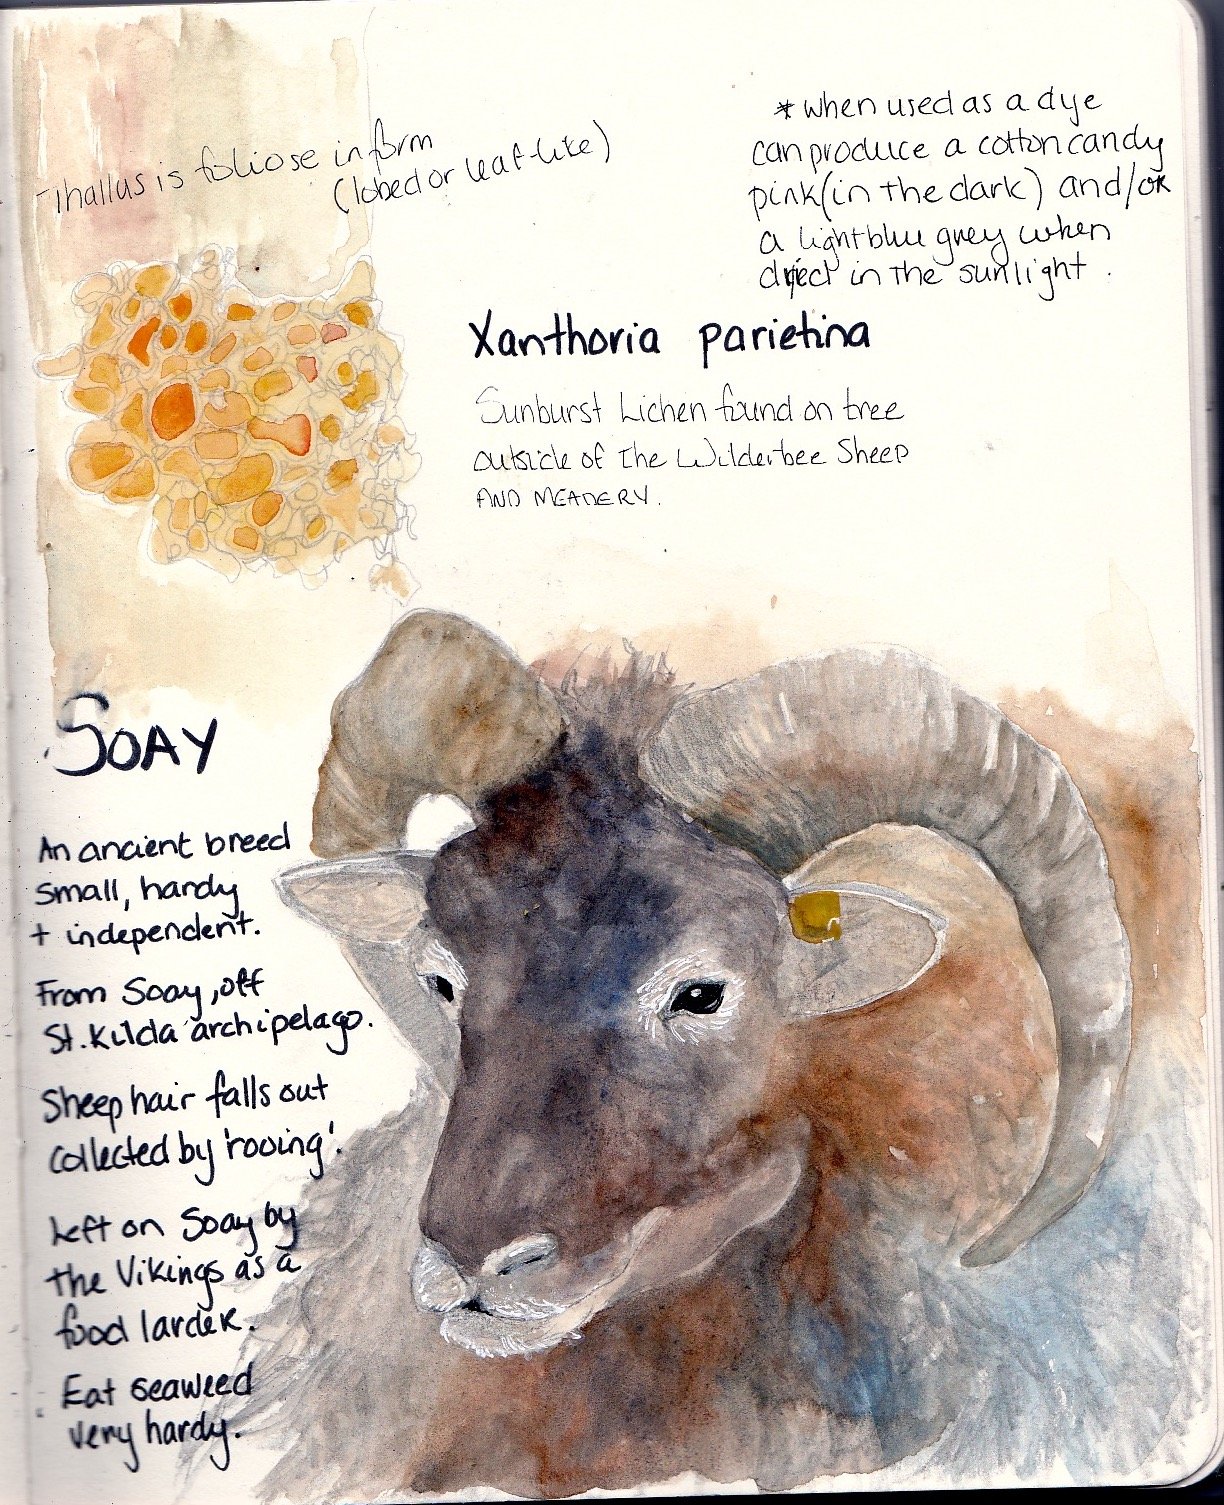 Thallus is foliose in form
(lobed or leaf-like)
* when used as a dye
can produce a cotton candy
pink (in the dark) and/or
a light blue grey when
dried in the sunlight.
Xanthoria parietina
Sunburst Lichen found on tree
outside of the Wilderbee Sheep
AND MEADERY.
SOAY
An ancient breed
small, hardy
+ independent.
From Soay, off
St. Kilda archipelago.
Sheep hair falls out
collected by 'rooing'.
Left on Soay by
the Vikings as a
food larder.
Eat seaweed
very hardy.